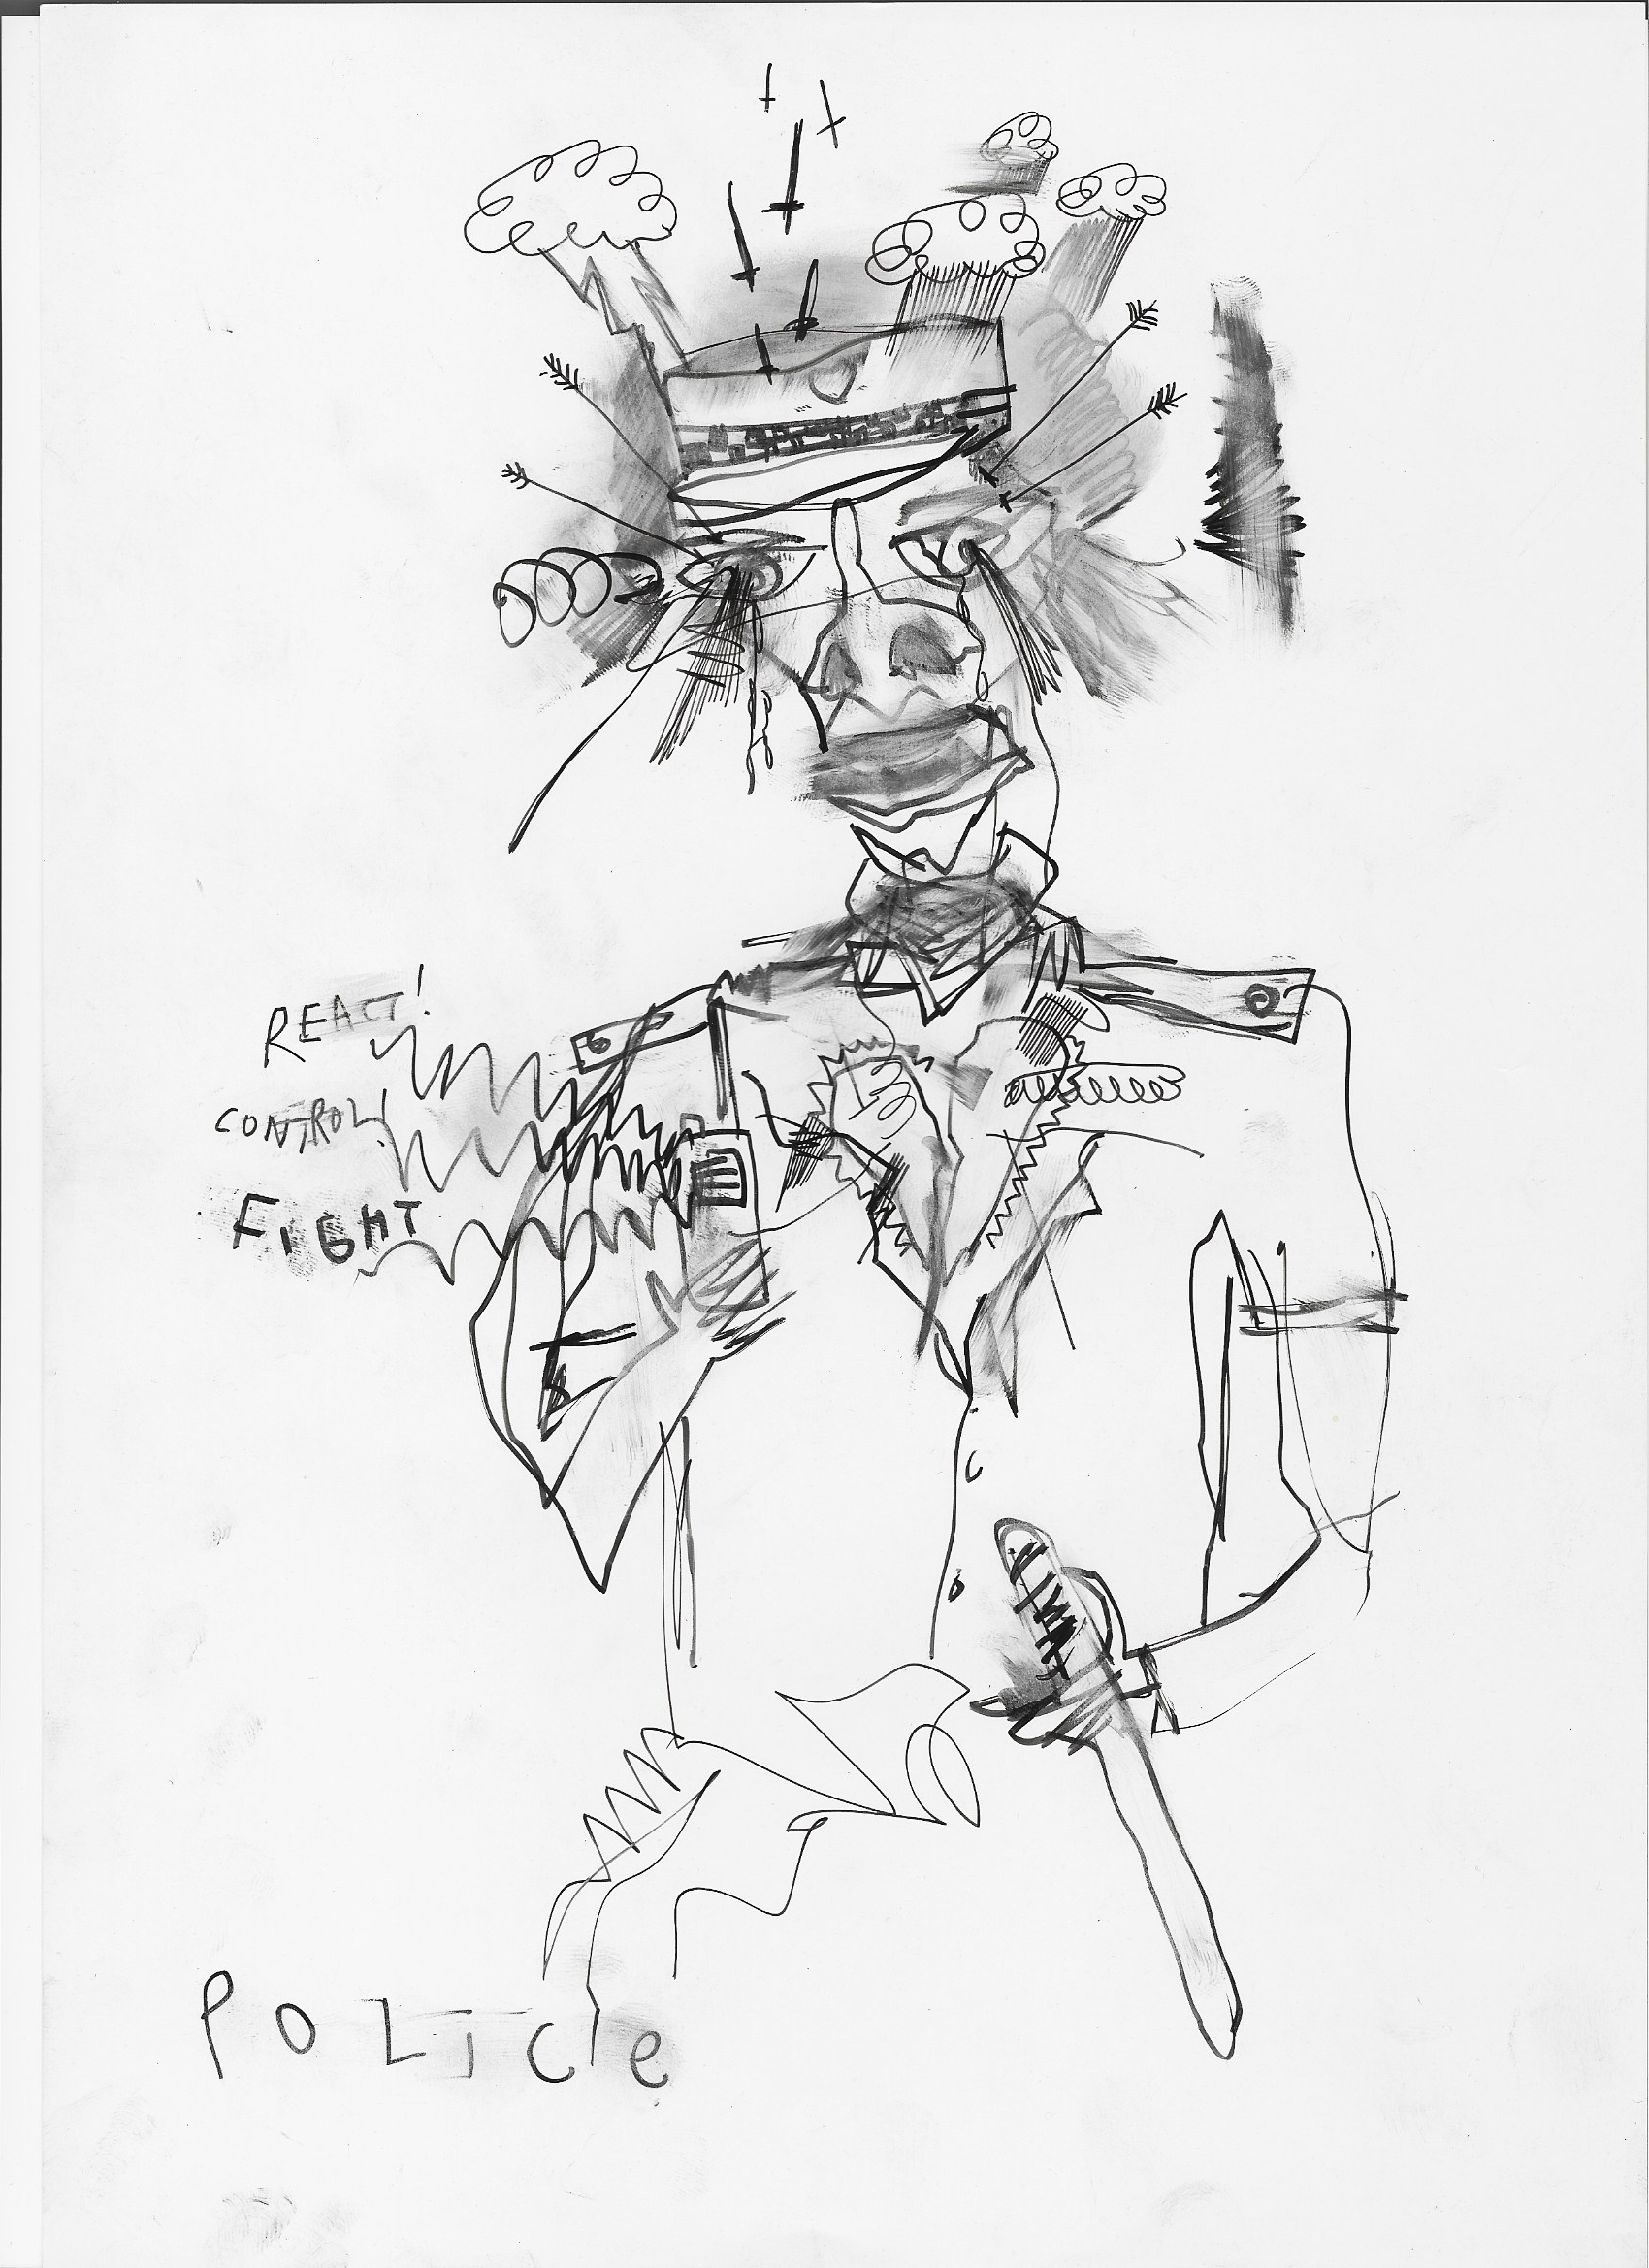 REACT!
CONTROL!
FIGHT
POLiCe